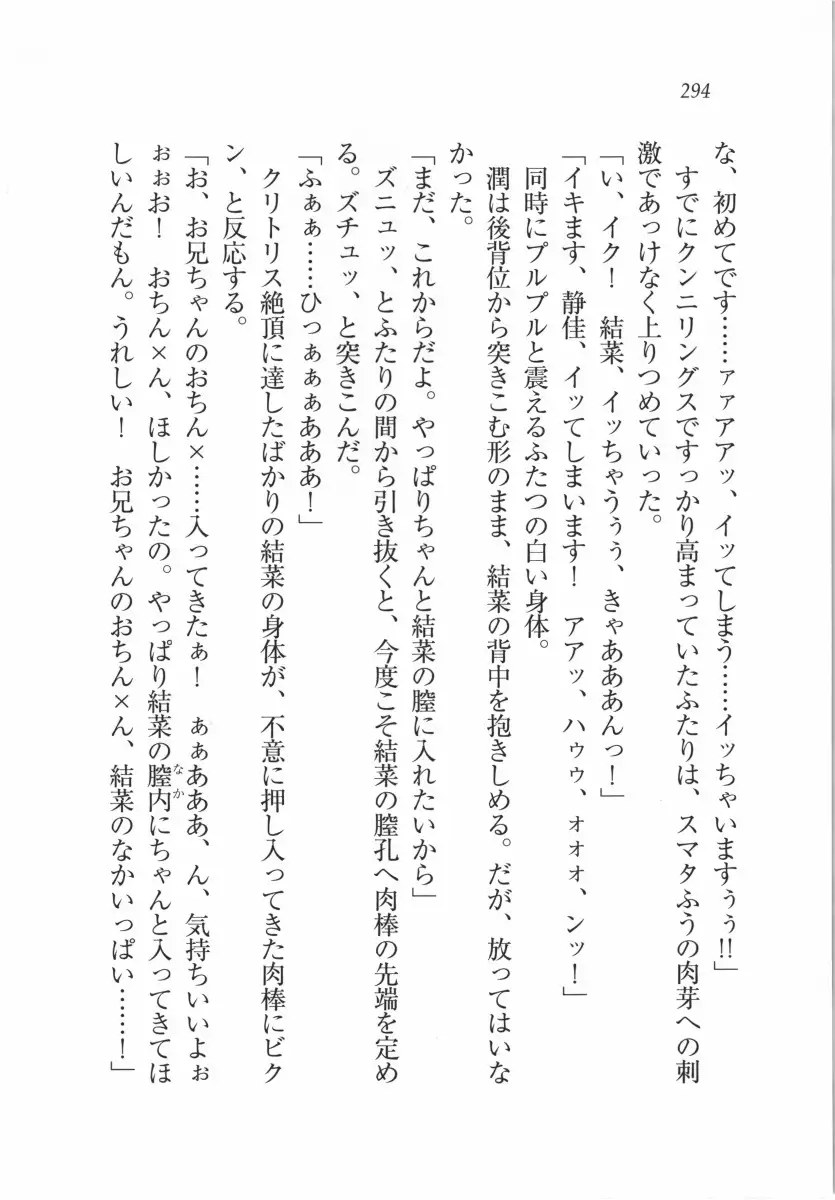 294
な、初めてです……ァァアアッ、イッてしまう……イッちゃいますぅぅ!!」
すでにクンニリングスですっかり高まっていたふたりは、スマタふうの肉芽への刺
激であっけなく上りつめていった。
「い、イク！　結菜、イッちゃうぅぅ、きゃあああんっ！」
「イキます、静佳、イッてしまいます！　アアッ、ハゥゥ、ォォォ、ンッ！」
同時にプルプルと震えるふたつの白い身体。
潤は後背位から突きこむ形のまま、結菜の背中を抱きしめる。だが、放ってはいな
かった。
「まだ、これからだよ。やっぱりちゃんと結菜の膣に入れたいから」
ズニュッ、とふたりの間から引き抜くと、今度こそ結菜の膣孔へ肉棒の先端を定め
る。ズチュッ、と突きこんだ。
「ふぁぁ……ひっぁぁぁあああ！」
クリトリス絶頂に達したばかりの結菜の身体が、不意に押し入ってきた肉棒にビク
ン、と反応する。
「お、お兄ちゃんのおちん×……入ってきたぁ！　ぁぁあああ、ん、気持ちいいよぉ
ぉぉお！　おちん×ん、ほしかったの。やっぱり結菜の膣内（なか）にちゃんと入ってきてほ
しいんだもん。うれしい！　お兄ちゃんのおちん×ん、結菜のなかいっぱい……！」